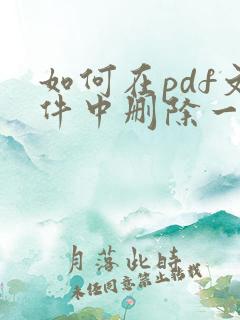 如何在pdf文
件中删除一
月落此时
未经同意禁止转载